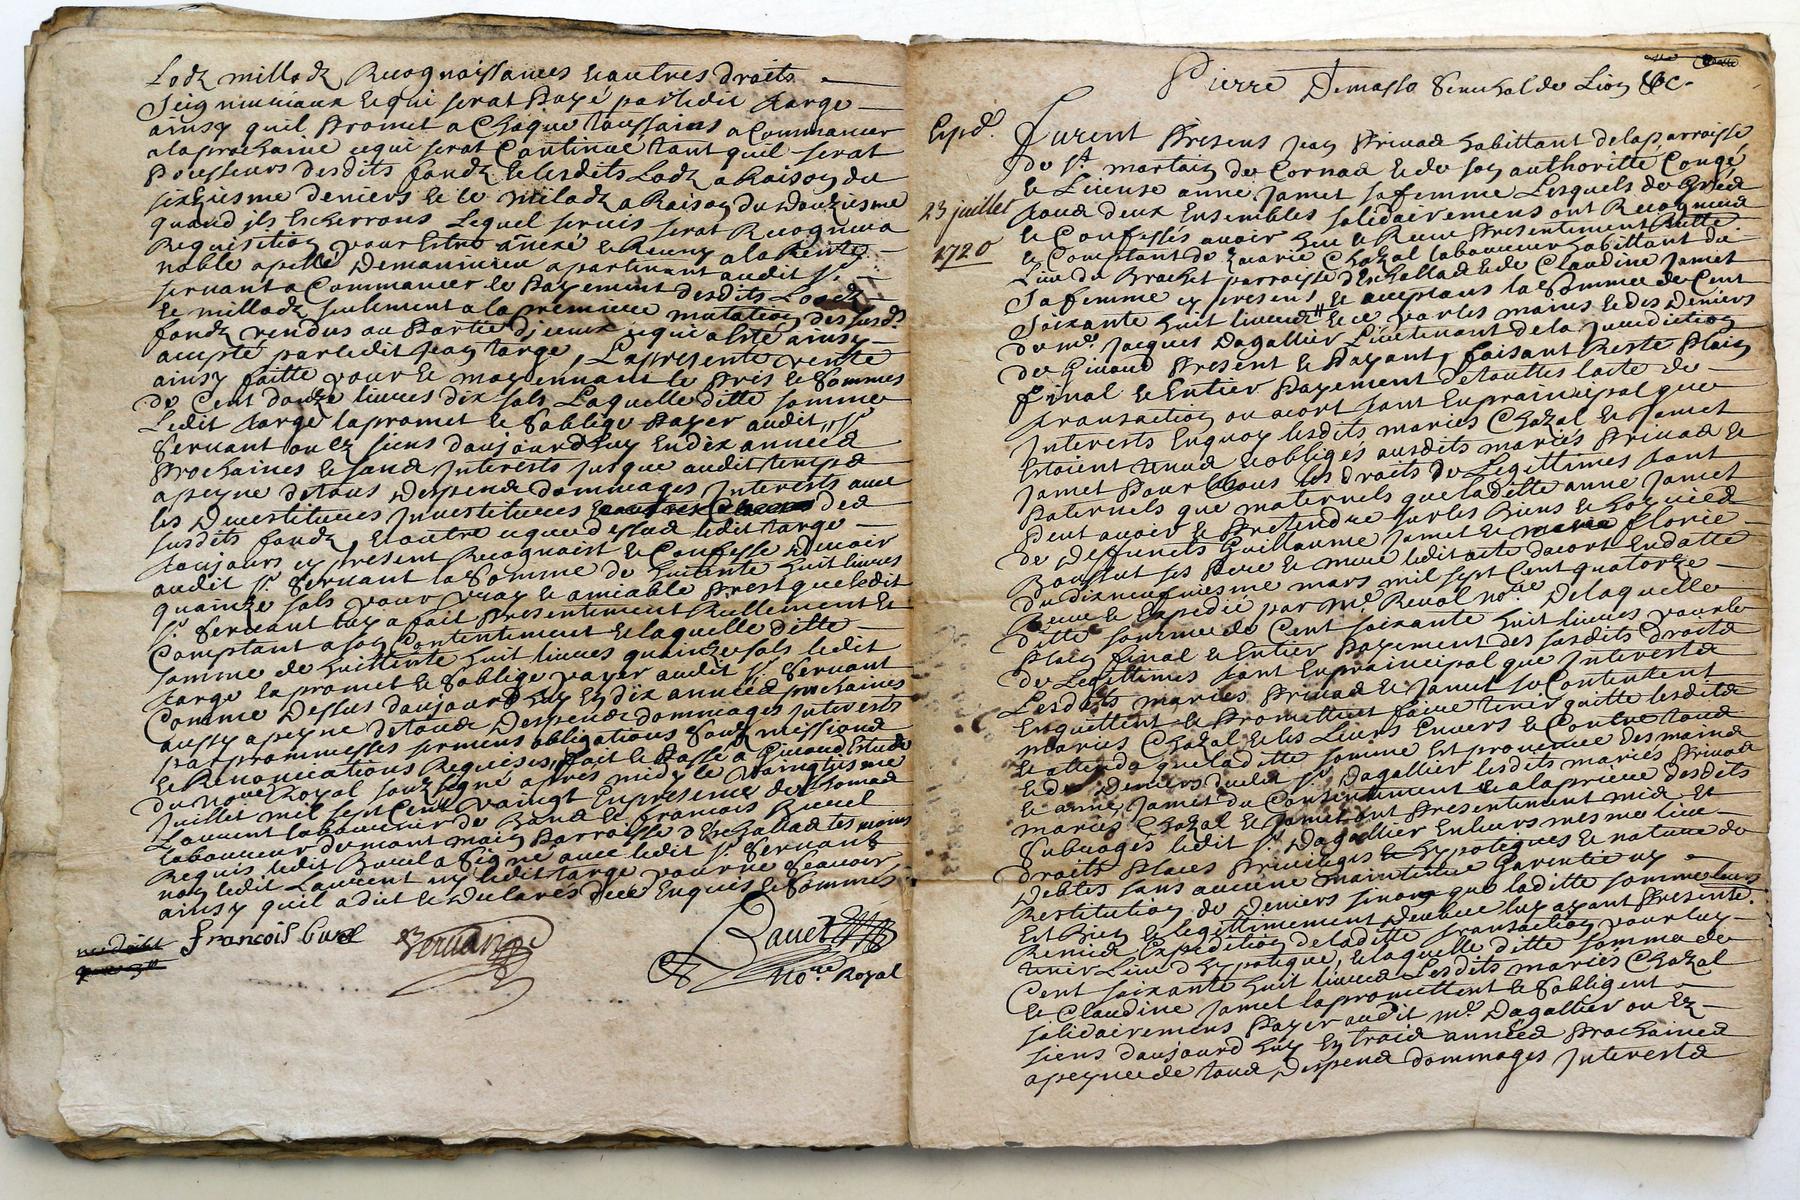 Lodz millodz Recognoissances & autres droits
Seigneuriaux & qui serat payé par ledit targe
ainsy quil promet a Chaque toussains a Commancer
a la prochaine & qui serat Continué tant quil serat
Possesseurs desdits fondz & lesdits Lodz a Raison du
sixziesme deniers & le Milodz a Raison du douzieme
quand ils Escherrons Lequel servis serat Recogneu a
Requisition pour Estre annexé & Reuny a la Rente
noble apellé Demanieu apartenant audit Sr.
servant a Commancer le Payement desdits Loodz
& millodz seulement a la premiere mutation des susds.
fondz vendus au Partie d'iceux & qui a Esté ainsy
accepté par ledit Jean targe, La presente vente
ainsy faitte pour & moyennant le Pris & Sommes
de Cent douze livres dix sols Laquelle ditte somme
Ledit targe la promet & soblige Payer audit Sr.
Servant ou Ez siens daujourdhuy En dix années
Prochaines & sans Interests jusque audit temps
a peyne de tous Despens dommages Interests avec
les Devestitures Investitures des
susdits fondz, & outre ce que dessus ledit targe
toujours cy present Recognoist & Confesse devoir
audit Sr. Servant la Somme de huitente huit livres
quainze sols pour vray & amiable Prest que ledit
Sr. Servant luy a fait Presentement Reellement &
Comptant a son Contentement & laquelle ditte
somme de huittente huit livres quainze sols ledit
targe la promet & soblige payer audit Sr. Servant
Comme Dessus daujourdhuy En dix années prochaines
aussy a peyne de tous Despens dommages Interests
par prommesses sermens obligations soubzmissions
& Renonciations Requises, fait & Passé a Givord Estude
du nore. Royal souzsigné apres midy le vaingtiesme
Juillet mil sept Cent vaingt En presence de thomas
Laurent laboureur de & francois Burel
Laboureur de mont main Parroisse d'Eschallas tesmoins
Requis ledit Burel a Signé avec ledit Sr. Servant
non ledit Laurent ny ledit targe pour ne scavoir
ainsy quil a dit & Declarés de ce Enquis & Sommés
francois burel
Servange
Bauer
No.re Royal
Pierre Demasso Senechal de Lion &c.
Expd.
23 juillet
1720
Furent Presens Jean Privas habittant de la parroisse
de St. martain de Cornas & de son authoritté Congé
& License anne Jamet sa femme Lesquels de grés
tous deux Ensembles solidairemens ont Recogneus
& Confessés avoir heu & Receu Presentement Reelle.
& Comptant de Chazal laboureur habittant du
Lieu du Brachet parroisse d'Eschallas & de Claudine Jamet
Sa femme cy presens & acceptans la Somme de Cent
Soixante huit livres & ce par les mains & des Deniers
de me. Jacques Dagallier Lieutenant de la Jurediction
de Givord Present & Payant, faisant Reste Plain
final & Entier Payement de touttes lacte de
transaction ou acort tant En prainsipal que
Interests Enquoy lesdits mariés Chazal & Jamet
Estoient tenus & obligés ausdits mariés Privas &
Jamet Pour tous les droits de Legittimes tant
Paternels que maternels que laditte anne Jamet
Peut avoir & Pretendre sur les Biens & hoyries
de deffuncts Guillaume Jamet & florie
ses Pere & mere ledit acte dacort En datte
du dixneufviesme mars mil sept Cent quatorze
Receu & Expedié par Me. Reval nore. De laquelle
ditte somme de Cent soixante huit livres pour le
Plain final & Entier Payement des susdits droits
de Legittimes tant En prainsipal que Interests
Lesdits mariés Privas & Jamet se Contentent
En quittent & Promettent faire tenir quitte lesdits
mariés Chazal & les Leurs Envers & Contre tous
& attendu que laditte somme Est provenue des mains
& de Deniers dudit Sr. Dagallier lesdits mariés Privas
& anne Jamet du Consentement & a la priere desdits
mariés Chazal & Jamet ont Presentement mis &
Subrogés ledit Sr. Dagallier En leurs mesme lieu
droits Places Privileges & hypotiques & nature de
Debtes sans aucune maintenue Garentie ny
Restitution de Deniers sinon que laditte somme leurs
Est Bien & legittimement Deuhe luy ayant Presente.
Remis Expedition de laditte transaction pour luy
tenir Lieu d'hypotique, & laquelle ditte somme de
Cent soixante huit livres Lesdits mariés Chazal
& Claudine Jamet la promettent & sobligent
solidairemens Payer audit me. Dagallier ou Ez
siens daujourdhuy En trois années Prochaines
a peyne de tous Despens dommages Interests